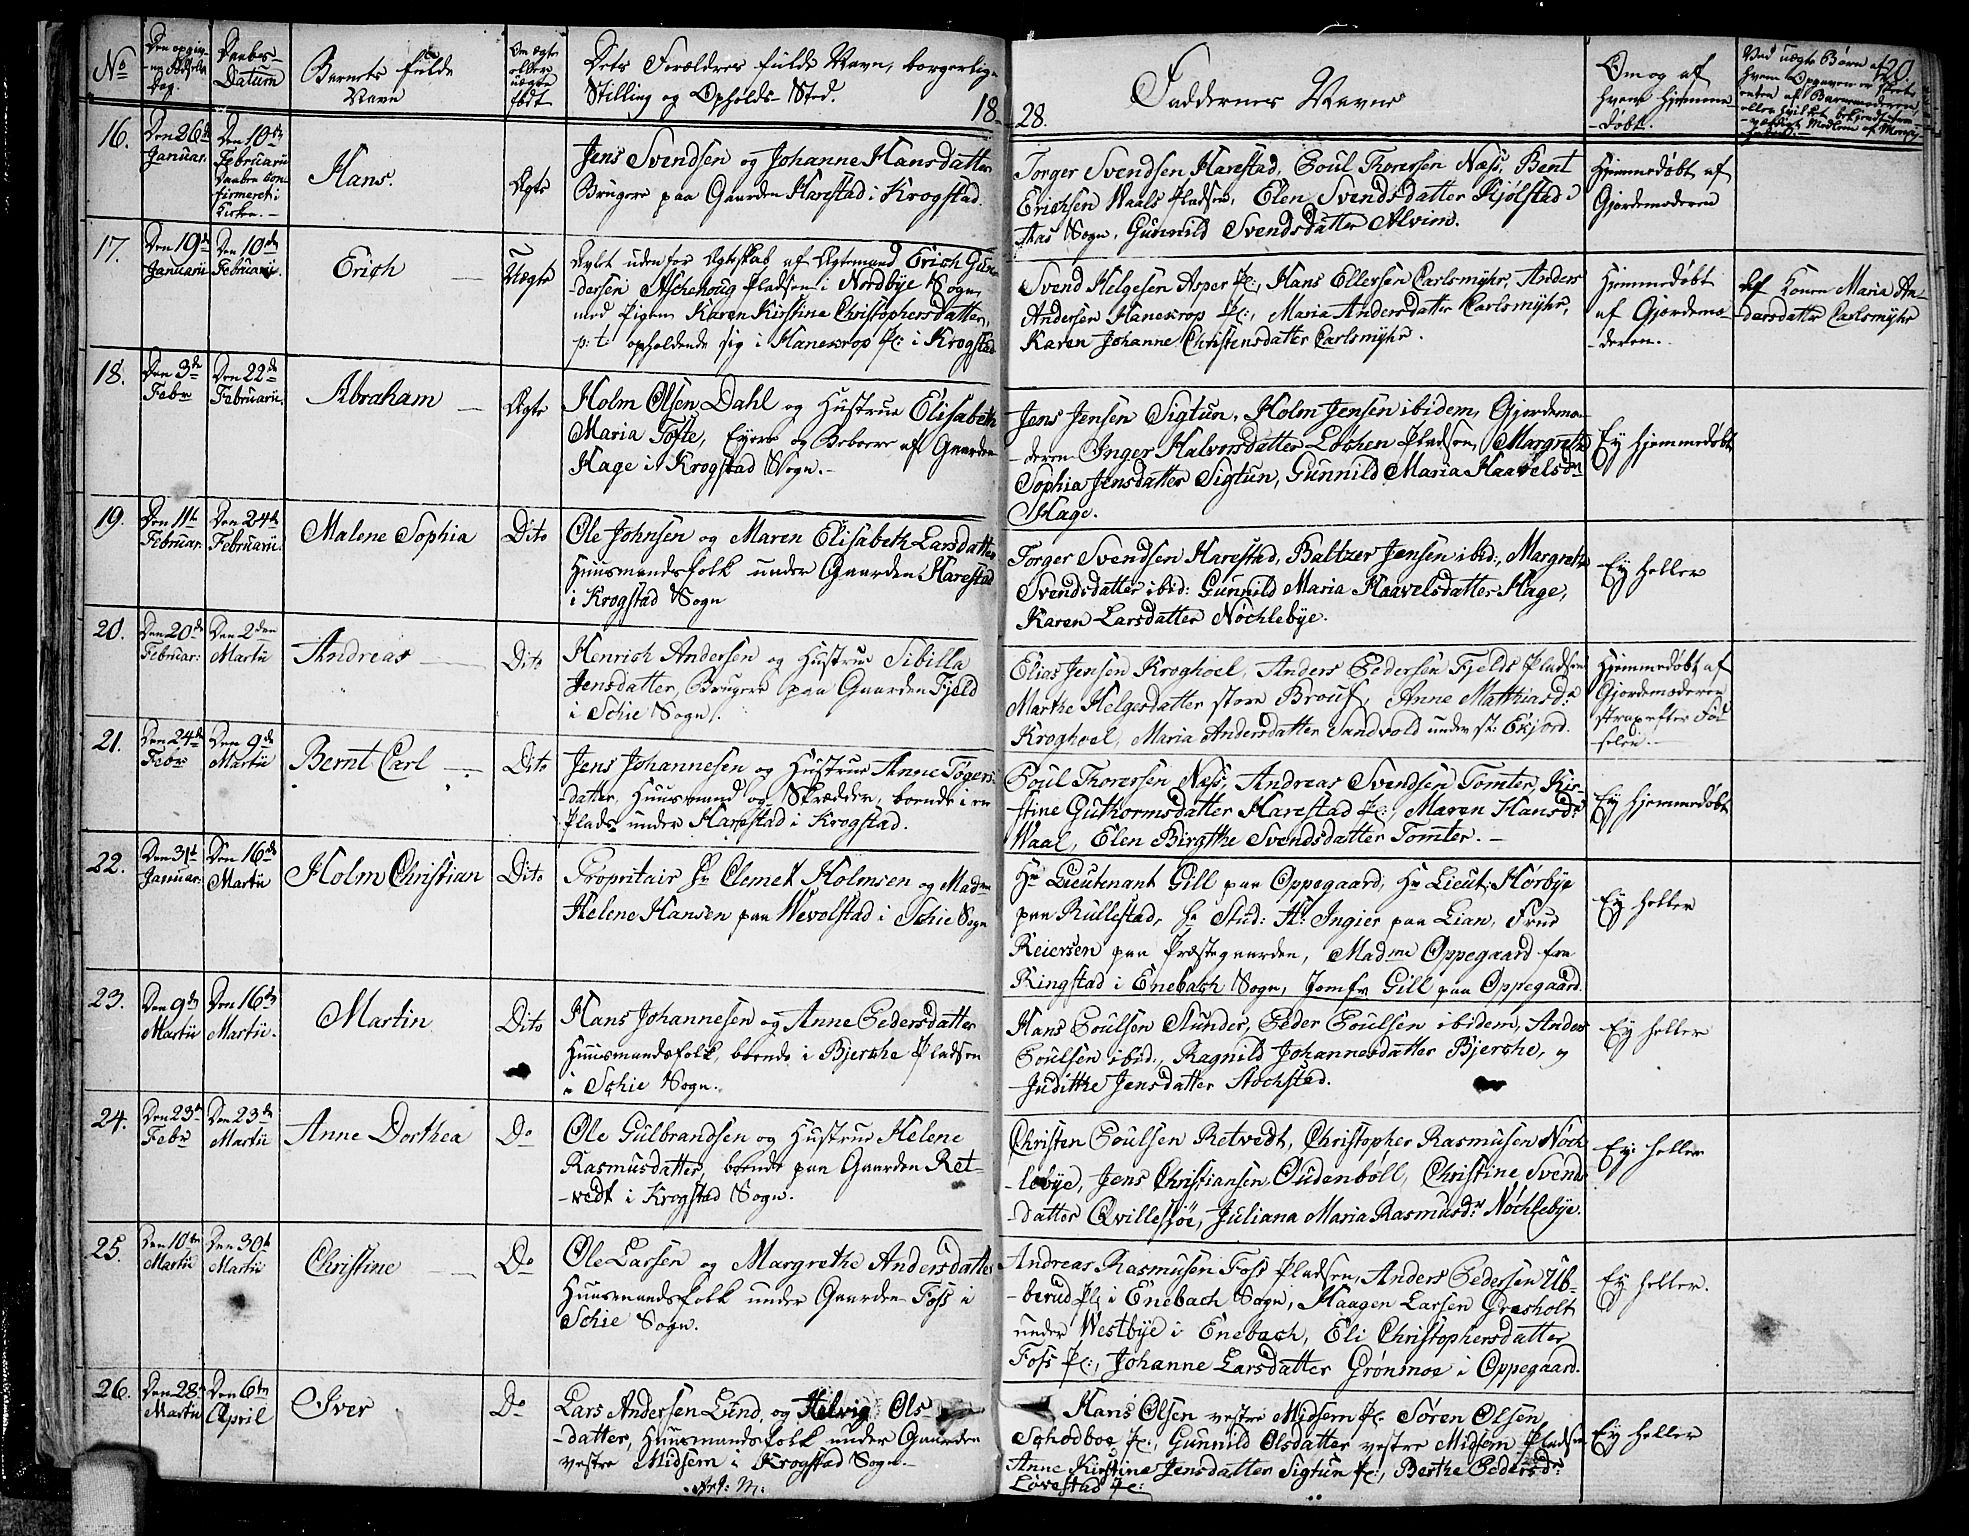 No
Den opgivne Fødsels Dag.
Daabs-Datum
Barnets fulde Navn
Om ægte eller uægte født
Dets Forældres fulde Navn, borgerlige Stilling og Opholds-Sted.
1828.
Faddernes Navne
Om og af hvem hjemmedøbt.
20.
16.
Den 26de Januar.
Den 10de Februarii Daaben Confirmeret i Kirken.
Hans.
Ægte
Jens Svendsen og Johanne Hansdatter
Brugere paa Gaarden Harestad i Krogstad.
Torger Svendsen Harestad, Poul Thoresen Næss, Bent
Erichsen Waals Pladsen, Elen Svendsdatter Kjølstad i
Aas Sogn, Gunnild Svendsdatter Alvim.
Hjemmedøbt af
Gjordemoderen
17.
Den 19de Januarii
Den 10de Februarii.
Erich
Uægte
Avlet uden for Ægteskab af Ægtemand Erich Gun-
dersen Aschehoug Pladsen i Nordbye Sogn,
med Pigen Karen Kirstine Christophersdatter,
p: t: opholdende sig i Hanekrop Pl: i Krogstad
Svend Helgesen Asper Pl:, Hans Ellersen Carlsmyhr, Anders
Andersen Hanekrop Pl:, Maria Andersdatter Carlsmyhr,
Karen Johanne Christensdatter Carlsmyhr.
Hjemmedøbt
af Gjordemo-
deren.
Af Konen Maria An-
dersdatter Carlsmyhr
18.
Den 3de Febr
Den 22de Februarii.
Abraham
Ægte
Holm Olsen Dahl og Hustrue Elisabeth
Maria Tofte, Eyere og Beboere af Gaarden
Hage i Krogstad Sogn.
Jens Jensen Sigtun, Holm Jensen ibidem, Gjordemo-
deren Inger Halvorsdatter Lochen Pladsen, Margrethe
Sophia Jensdatter Sigtun, Gunnild Maria Haavelsdr
Hage.
Ey hjemmedøbt
19.
Den 11te Februar.
Den 24de Februarii.
Malene Sophia
Dito
Ole Johnsen og Maren Elisabeth Larsdatter
Huusmandsfolk under Gaarden Harestad
i Krogstad Sogn
Torger Svendsen Harestad, Baltzer Jensen ibid:, Margrethe
Svendsdatter ibid: Gunnild Maria Haavelsdatter Hage,
Karen Larsdatter Nøchlebye.
Ey heller
20.
Den 20de Februar:
Den 2den Martii
Andreas
Dito
Henrich Andersen og Hustrue Sibilla
Jensdatter, Brugere paa Gaarden Fjeld
i Schie Sogn.
Elias Jensen Kroghoel, Anders Pedersen Fjelds Pladsen
Marthe Helgesdatter store Brouf, Anne Matthiasdr
Kroghoel, Maria Andersdatter Sandvold under st: Ekjord.
Hjemmedøbt af
Gjordemoderen
strax efter Fød-
selen.
21.
Den 24de Febr
Den 9de Martii
Bernt Carl
Dito
Jens Johannesen og Hustrue Anne Tøgers-
datter, Huusmand og Skrædder, boende i en
Plads under Harestad i Krogstad.
Poul Thoresen Næss, Andreas Svendsen Tomter, Kir-
stine Guthormsdatter Harestad Pl:, Maren Hansdr
Waal, Elen Birgthe Svendsdatter Tomter.
Ey hjemmedøbt
22.
Den 31te Januar:
Den 16de Martii
Holm Christian
Dito
Propritair Hr Clemet Holmsen og Madme
Helene Hansen paa Wevelstad i Schie Sogn
Hr Lieutenant Gill paa Oppegaard, Hr Lieut: Hørbye
paa Rullestad, Hr Stud: H: Ingier paa Lian, Frue
Reiersen paa Præstegaarden, Madme Oppegaard fra
Ringstad i Enebach Sogn, Jomfr Gill paa Oppegaard.
Ey heller
23.
Den 9de Martii
Den 16de Martii.
Martin
Dito
Hans Johannesen og Anne Pedersdatter
Huusmandsfolk, boende i Bjerche Pladsen
i Schie Sogn.
Hans Poulsen Aunder, Peder Poulsen ibidem, Anders
Poulsen ibid:, Ragnild Johannesdatter Bjerche, og
Judithe Jensdatter Stochstad.
Ey heller
24.
Den 23de Febr
Den 23de Martii
Anne Dorthea
Do
Ole Gulbrandsen og Hustrue Helene
Rasmusdatter, boende paa Gaarden Ret-
vedt i Krogstad Sogn.
Christen Poulsen Retvedt, Christopher Rasmusen Nøch-
lebye, Jens Christiansen Oudenbøll, Christine Svends-
datter Qvillesjøe, Juliana Maria Rasmusdr Nøchlebye.
Ey heller
25.
Den 10de Martii
Den 30te Martii
Christine
Do
Ole Larsen og Margrethe Andersdatter
Huusmandsfolk under Gaarden Foss i
Schie Sogn.
Andreas Rasmusen Foss Pladsen, Anders Pedersen Ub-
berud Pl: i Enebach Sogn, Haagen Larsen Gresholt
under Westbye i Enebach, Eli Christophersdatter
Foss Pl:, Johanne Larsdatter Grønmoe i Oppegaard.
Ey heller.
26.
Den 28de Martii
Den 6te April
Iver
Do
Lars Andersen Lund, og Helvig Ols-
datter, Huusmandsfolk under Gaarden
vestre Midsem i Krogstad Sogn.
Hans Olsen vestre Midsem Pl: Søren Olsen
Schodboe Pl:, Gunnild Olsdatter vestre Midsem Pladsen
Anne Kirstine Jensdatter Sigtun Pl:, Berthe Pedersdr
Løvestad Pl:
Ey heller